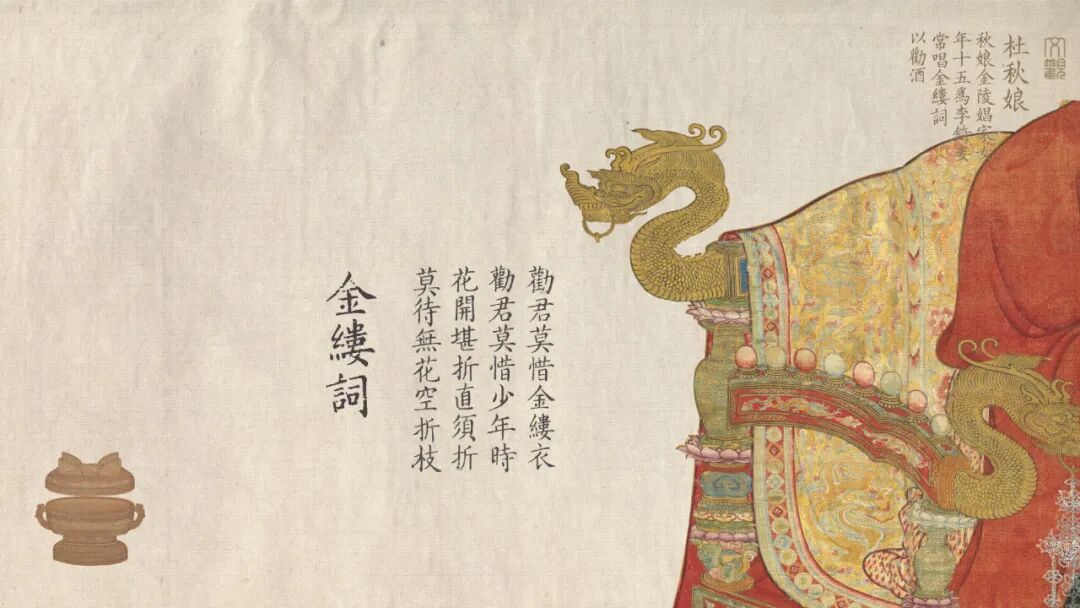 杜秋娘
秋娘金陵娼家女
年十五爲李錡妾
常唱金縷詞
以勸酒
勸君莫惜金縷衣
勸君莫惜少年時
花開堪折直須折
莫待無花空折枝
金縷詞